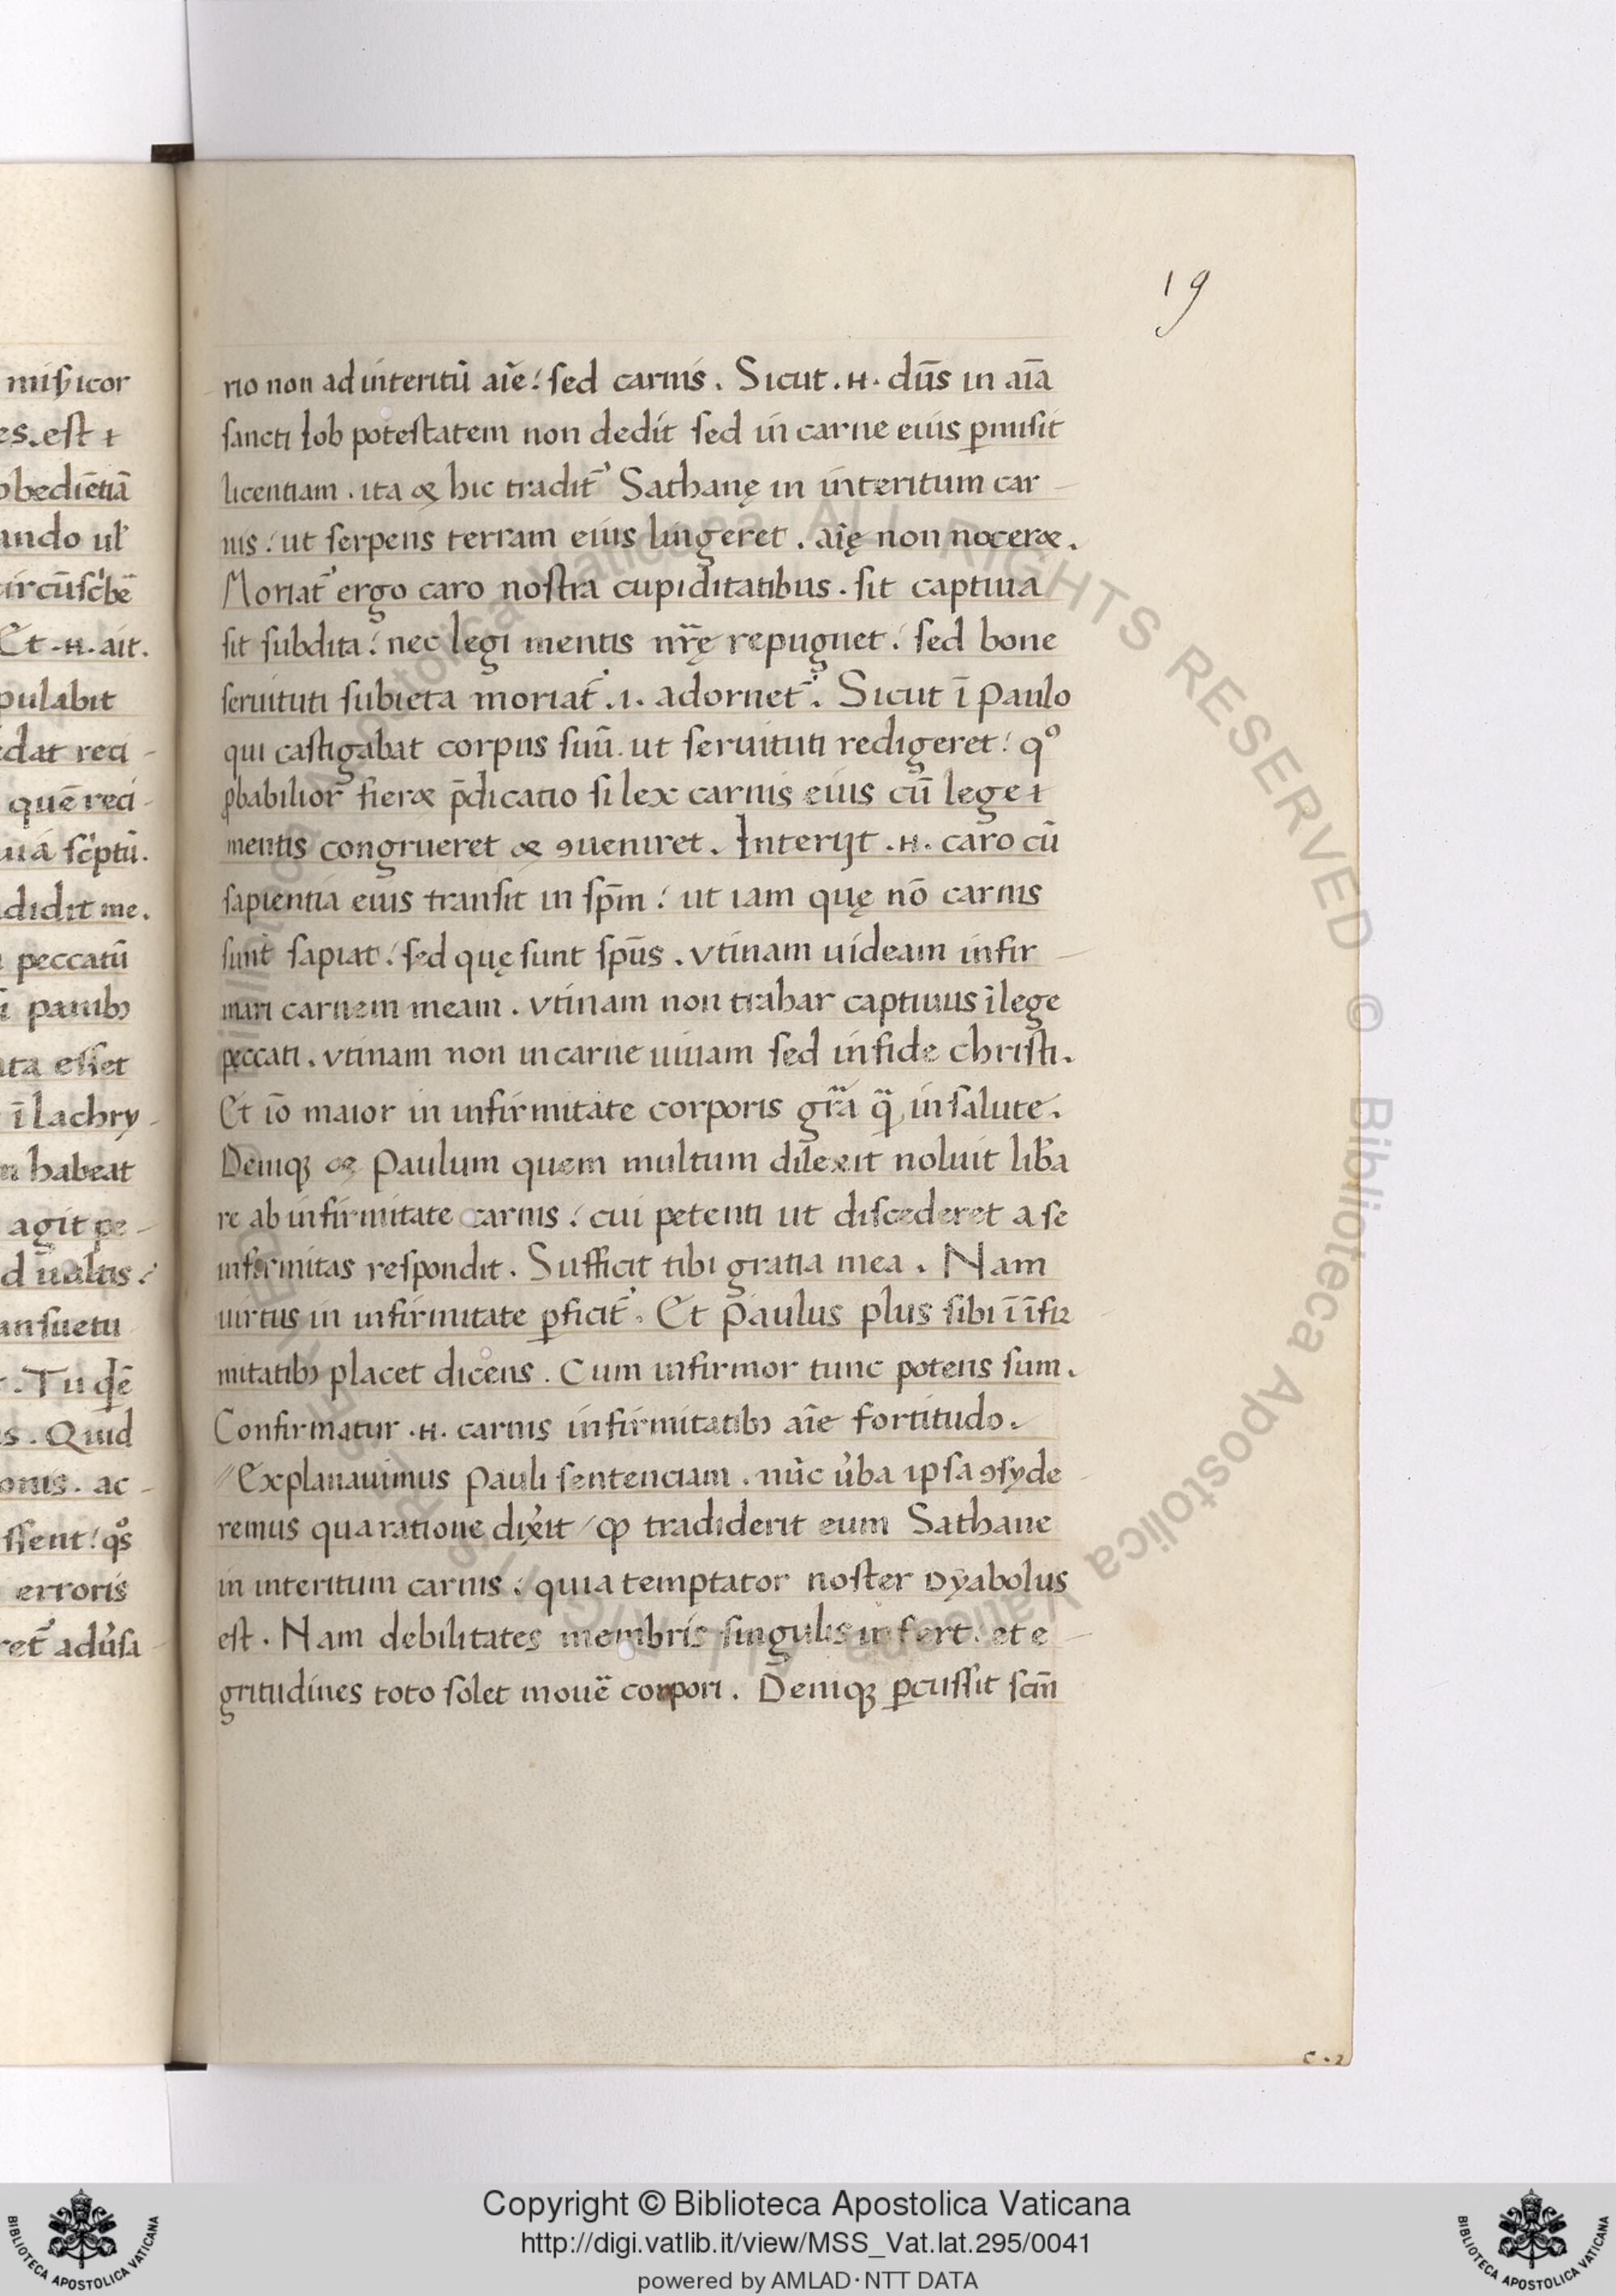 misicor
es. est ⁊
obediētiā
ando ul'
circūsc'bē
Et .H. ait.
pulabit
edat reci-
quē reci-
uiā sc'ptū.
didit me.
peccatū
ī panibꝫ
ata esset
ī lachry-
n habeat
agit pe-
d ualtis:
ansuetu
. Tu qdē
s. Quid
onis. ac-
ssent: qōs
erroris
ret̄ adu'sa
19
rio non ad interitū aīe: sed carnis. Sicut .H. dūs in aīa
sancti Iob potestatem non dedit sed in carne eius ꝑmisit
licentiam. ita & hic tradit̄' Sathanę in interitum car-
nis: ut serpens terram eius lingeret. aīę non nocer&.
Moriat̄' ergo caro nostra cupiditatibus. sit captiua
sit subdita: nec legi mentis nr̄ę repugnet: sed bone
seruituti subieta moriat̄' .i. adornet̄'. Sicut ī Paulo
qui castigabat corpus suū. ut seruituti redigeret: qº
ꝓbabilior fier& p̄dicatio si lex carnis eius cū lege ⁊
mentis congrueret & ꝯueniret. Interijt .H. caro cū
sapientia eius transit in sp̄m: ut iam quę nō carnis
sunt sapiat: sed quę sunt sp̄us. vtinam uideam infir-
mari carnem meam. vtinam non trahar captiuus ī lege
peccati. vtinam non in carne uiuam sed in fide christi.
Et iō maior in infirmitate corporis gr̄a q̄ in salute.
Deniqꝫ & Paulum quem multum dilexit noluit lib'a
re ab infirmitate carnis: cui petenti ut discederet a se
infirmitas respondit. Sufficit tibi gratia mea. Nam
uirtus in infirmitate ꝑficit̄'. Et Paulus plus sibi ī īfir
mitatibꝫ placet dicens. Cum infirmor tunc potens sum.
Confirmatur .H. carnis infirmitatibꝫ aīe fortitudo.
//Explanauimus Pauli sentenciam. nūc u'ba ipsa ꝯsyde-
remus qua ratione dix'it / qꝫ tradiderit eum Sathane
in interitum carnis: quia temptator noster Dyabolus
est. Nam debilitates membris singulis infert. et e-
gritudines toto solet mouē corpori. Deniqꝫ ꝑcussit scm̄
c . 2
Copyright © Biblioteca Apostolica Vaticana
http://digi.vatlib.it/view/MSS_Vat.lat.295/0041
powered by AMLAD·NTT DATA
BIBLIOTECA APOSTOLICA VATICANA
BIBLIOTECA APOSTOLICA VATICANA